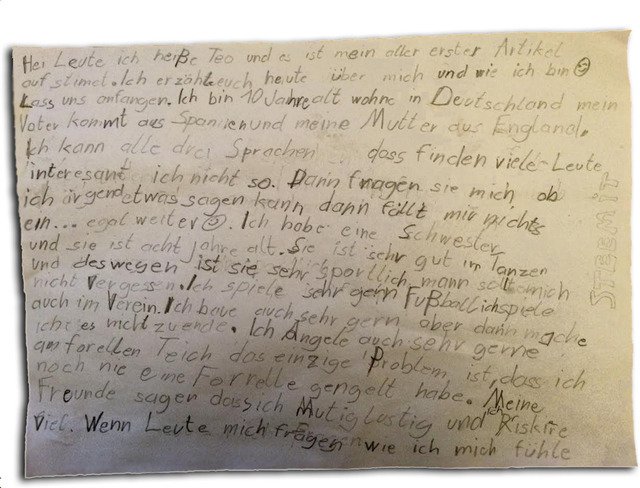 Hei Leute ich heiße Teo und es ist mein aller erster Artikel
auf stimet. Ich erzähle euch heute über mich und wie ich bin ☺
Lass uns anfangen. Ich bin 10 Jahre alt wohne in Deutschland mein
Vater kommt aus Spanien und meine Mutter aus England.
Ich kann alle drei Sprachen dass finden viele Leute
interesant ich nicht so. Dann fragen sie mich ob
ich irgendetwas sagen kann dann fällt mir nichts
ein... egal weiter ☺. Ich habe eine Schwester
und sie ist acht Jahre alt. Sie ist sehr gut im Tanzen
und deswegen ist sie sehr sportlich mann sollte mich
nicht vergessen. Ich spiele sehr gern Fußball ich spiele
auch im Verein. Ich baue auch sehr gern aber dann mache
ich es nicht zu ende. Ich Angele auch sehr gerne
am forellen Teich das einzige Problem ist, dass ich
noch nie eine Forrelle gengelt habe. Meine
Freunde sagen das ich Mutig lustig und Riskire
Viel. Wenn Leute mich fragen wie ich mich fühle
STEEMIT